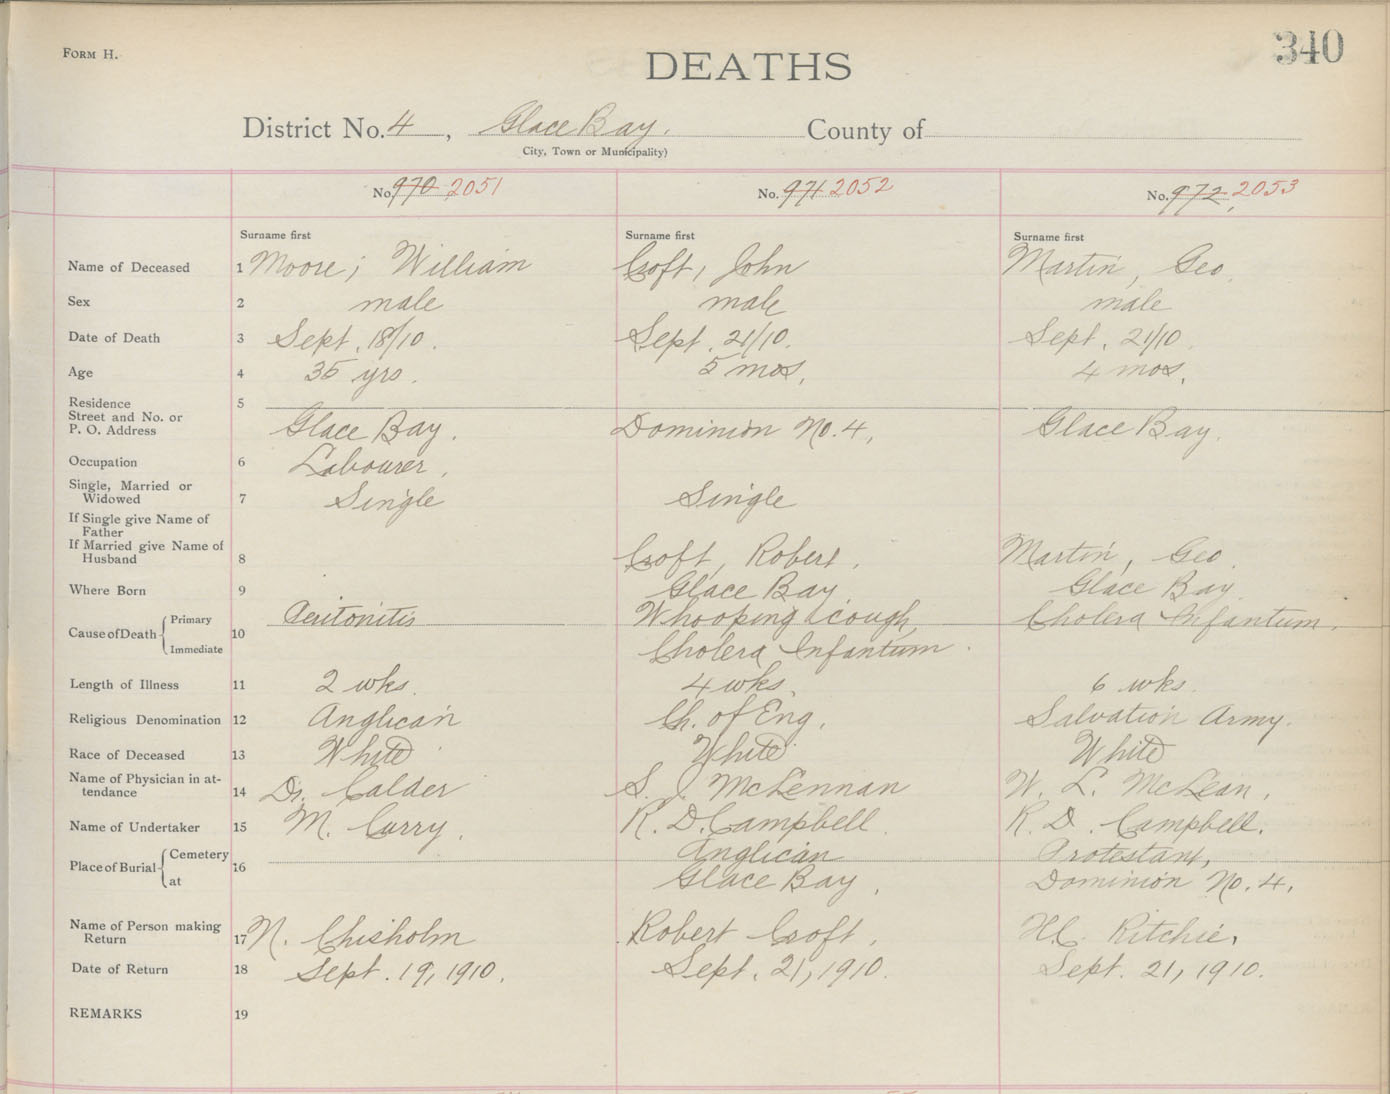 FORM H.
340
DEATHS
District No. 4, Glace Bay. County of
City, Town or Municipality)
No. 970 2051 No. 971 2052 No. 972, 2053
Surname first Surname first Surname first
Name of Deceased 1 Moore; William Croft, John Martin, Geo.
Sex 2 male male male
Date of Death 3 Sept. 18/10. Sept. 21/10. Sept. 21/10.
Age 4 35 yrs. 5 mos. 4 mos.
Residence 5
Street and No. or
P. O. Address Glace Bay. Dominion No. 4, Glace Bay.
Occupation 6 Labourer.
Single, Married or
Widowed 7 Single Single
If Single give Name of
Father
If Married give Name of
Husband 8 Croft, Robert. Martin, Geo.
Where Born 9 Glace Bay Glace Bay.
Cause of Death Primary 10 Peritonitis Whooping cough, Cholera Infantum.
Immediate Cholera Infantum.
Length of Illness 11 2 wks. 4 wks. 6 wks.
Religious Denomination 12 Anglican Ch. of Eng. Salvation Army.
Race of Deceased 13 White White White
Name of Physician in at-
tendance 14 Dr. Calder S. J. McLennan W. L. McLean.
Name of Undertaker 15 M. Curry. R. D. Campbell R. D. Campbell.
Place of Burial Cemetery 16 Anglican Protestant,
at Glace Bay. Dominion No. 4.
Name of Person making
Return 17 N. Chisholm Robert Croft. H.C. Ritchie.
Date of Return 18 Sept. 19, 1910. Sept. 21, 1910. Sept. 21, 1910.
REMARKS 19